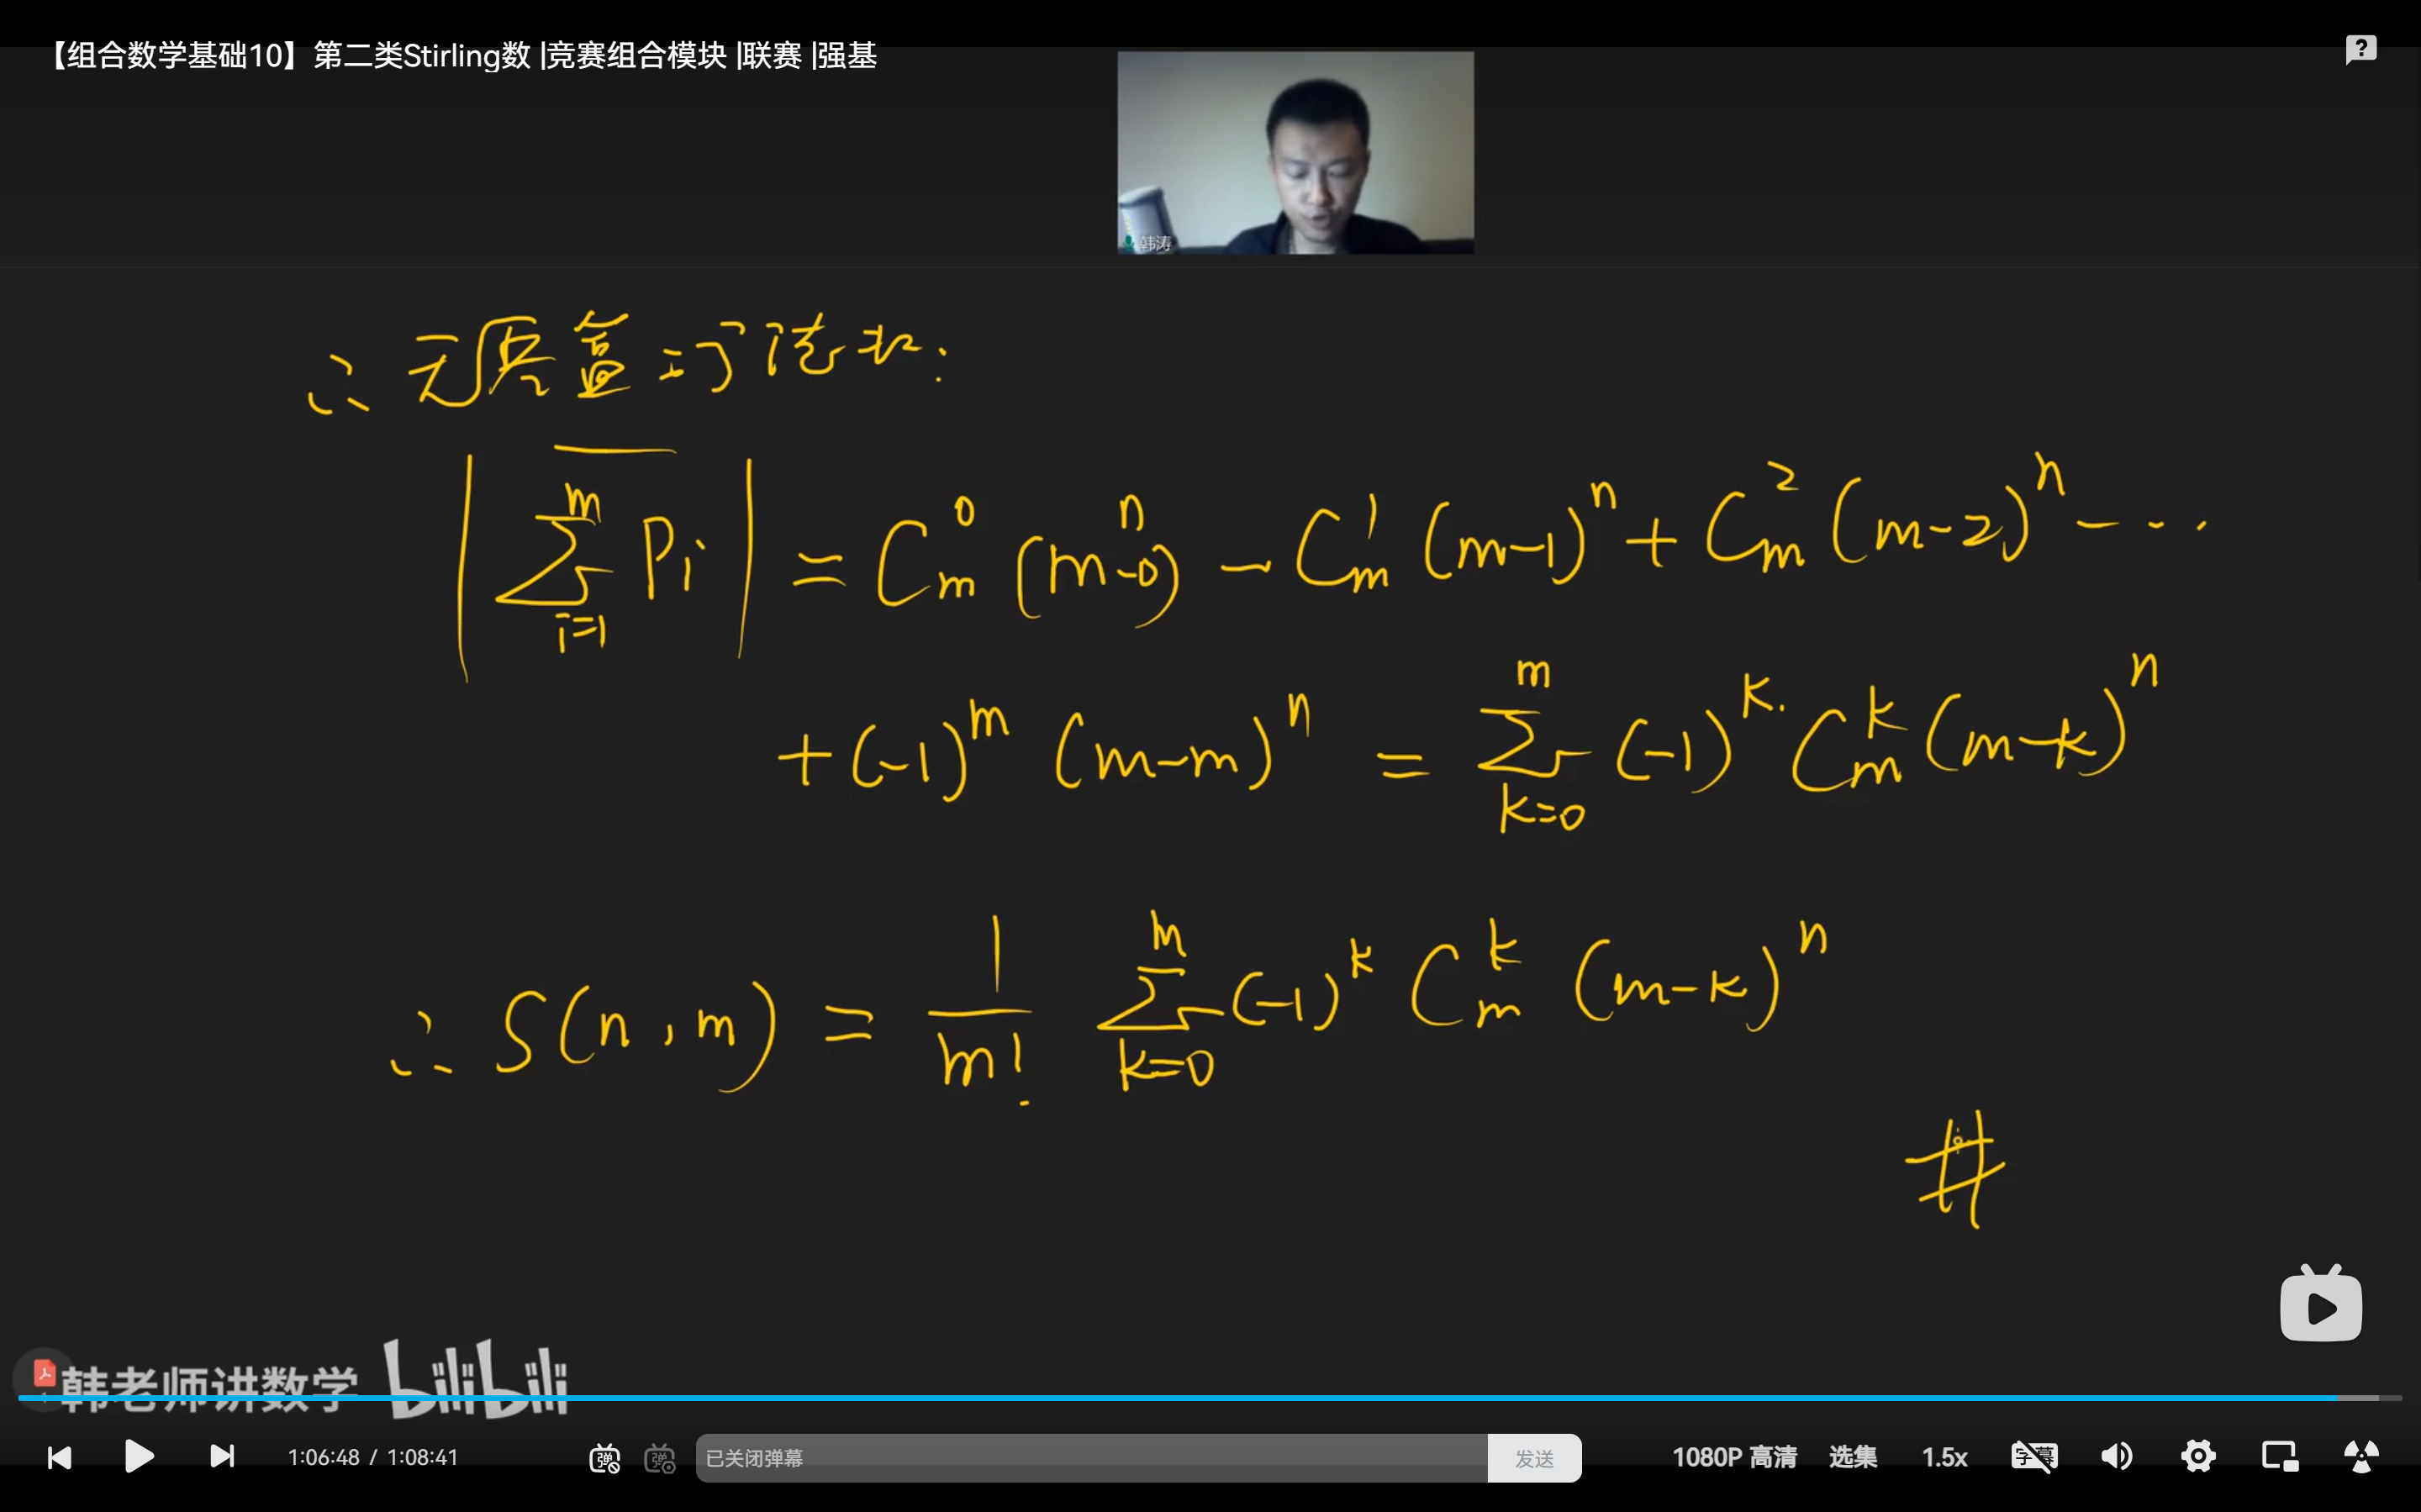 【组合数学基础10】第二类Stirling数 |竞赛组合模块 |联赛 |强基
韩涛
∴ 无空盒的方法数:
|\overline{\sum_{i=1}^{m} P_i}| = C_m^0 (m-0)^n - C_m^1 (m-1)^n + C_m^2 (m-2)^n - ···
+ (-1)^m (m-m)^n = \sum_{k=0}^{m} (-1)^k · C_m^k (m-k)^n
∴ S(n, m) = \frac{1}{m!} \sum_{k=0}^{m} (-1)^k C_m^k (m-k)^n
#
韩老师讲数学 bilibili
1:06:48 / 1:08:41 弹 弹 已关闭弹幕 发送 1080P 高清 选集 1.5x 字幕